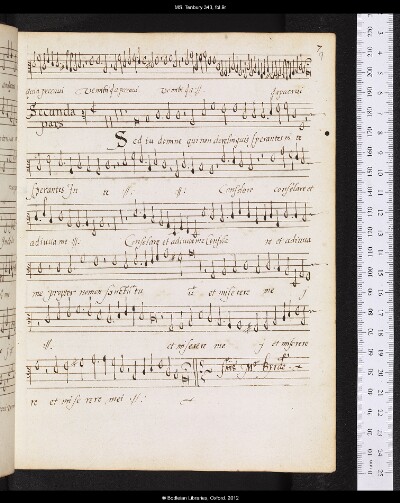 MS. Tenbury 343, fol.9r
7
quia peccavi
Secunda
pars
Sed tu domine qui non derelinquis sperantes in te
sperantes In te :||: :||: Consolare consolare et
adiuva me :||: Consolare et adiuva me Consola re et adiuva
me propter nomen sanctu tu u et miserere me j
:||: et miserere me j et miserere
re et mise rere mei :||:
finis Mr Birde
© Bodleian Libraries, Oxford, 2012